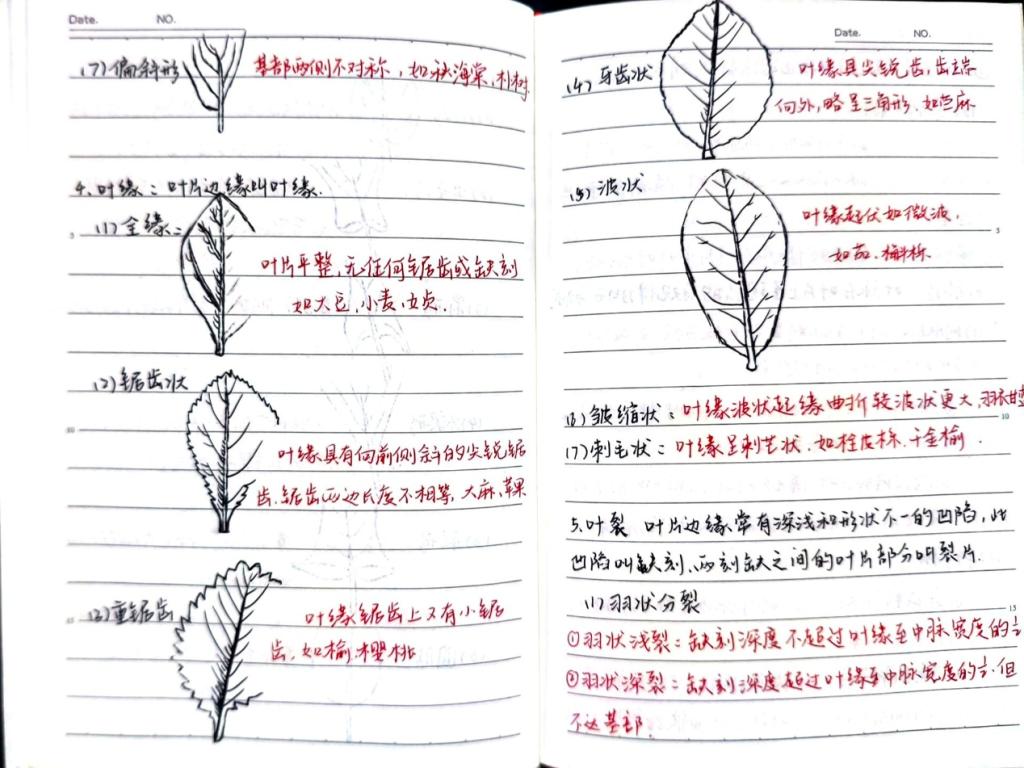 Date. NO.
(7) 偏斜形
基部两侧不对称，如秋海棠，朴树
4、叶缘：叶片边缘叫叶缘.
(1) 全缘：
叶片平整，无任何锯齿或缺刻
如大包，小麦，女贞.
(2) 锯齿状
叶缘具有向前侧斜的尖锐锯
齿.锯齿两边长度不相等，大麻，苹果
(3) 重锯齿
叶缘锯齿上又有小锯
齿.如榆.樱桃
Date. NO.
(4) 牙齿状
叶缘具尖锐齿，齿端
向外，略呈三角形.如苎麻
(5) 波状
叶缘起伏如微波.
如茄.槲栎.
(6) 皱缩状：叶缘波状起缘曲折较波状更大，羽衣甘蓝
(7) 刺毛状：叶缘呈刺芒状.如栓皮栎.千金榆.
5.叶裂 叶片边缘常有深浅和形状不一的凹陷，此
凹陷叫缺刻.两刻缺之间的叶片部分叫裂片.
(1) 羽状分裂
①羽状浅裂：缺刻深度不超过叶缘至中脉宽度的½
②羽状深裂：缺刻深度超过叶缘至中脉宽度的½.但
不达基部.